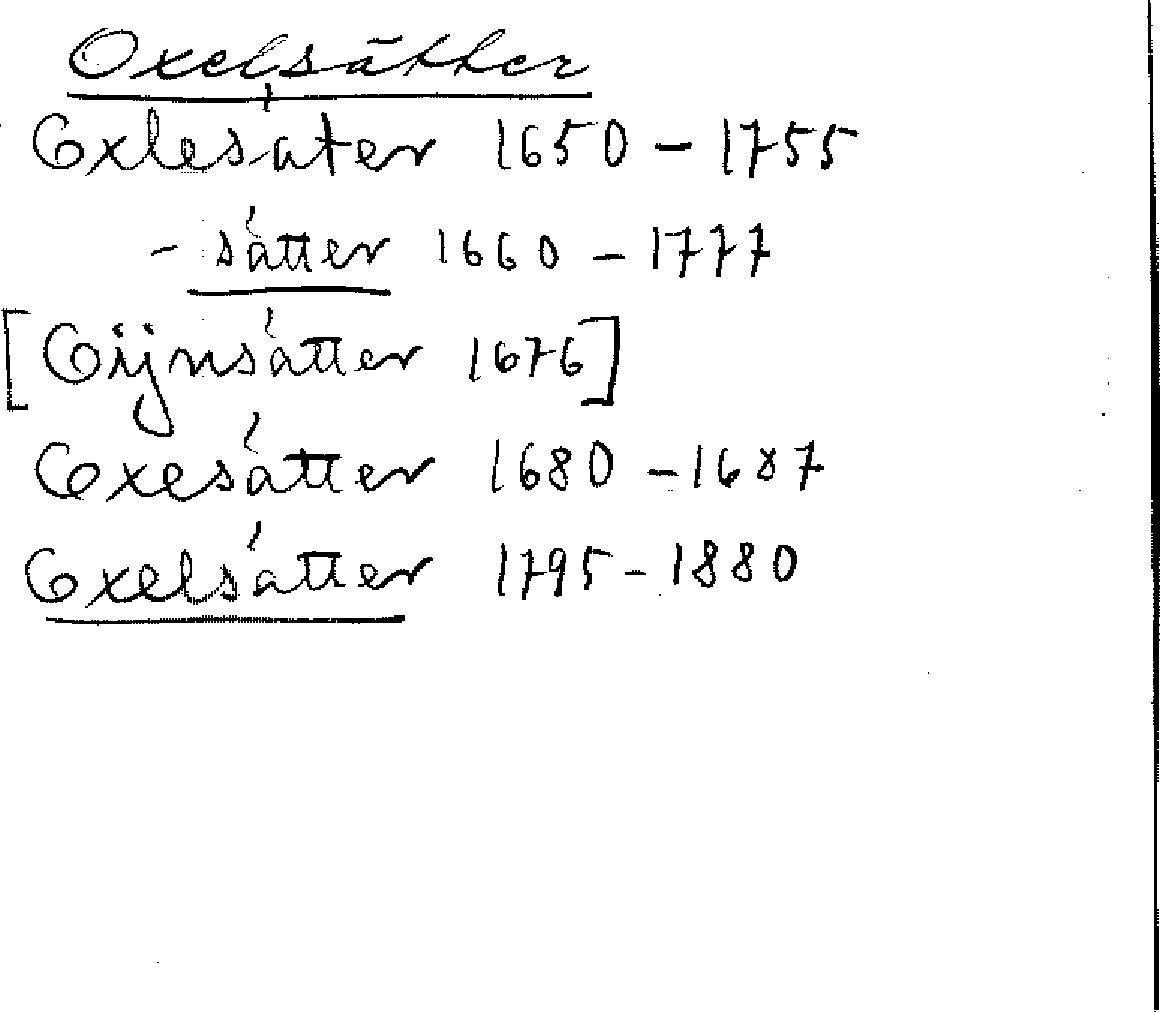 Oxelsäther
Oxlesäter 1650 – 1755
– sätter 1660 – 1777
[Oijnsätter 1676]
Oxesätter 1680 – 1687
Oxelsätter 1795 – 1880